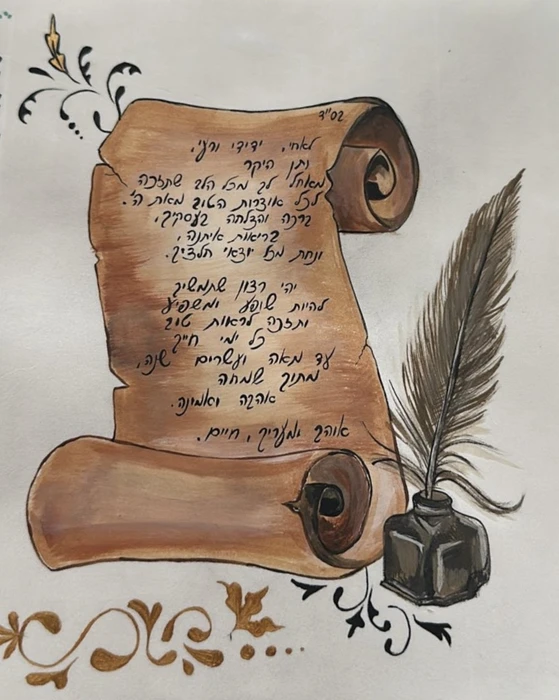 בס״ד
לאחי, ידידי ורעי,
נתן היקר
מאחל לך מכל הלב שתזכה
לכל אוצרות הטוב מאת ה׳.
ברכה והצלחה בעסקיך,
בריאות איתנה,
ונחת מכל יוצאי חלציך.
יהי רצון שתמשיך
להיות שופע ומשפיע
ותזכה לראות טוב
כל ימי חייך
עד מאה ועשרים שנה,
מתוך שמחה
אהבה ואמונה.
אוהב ומעריך, חיים.